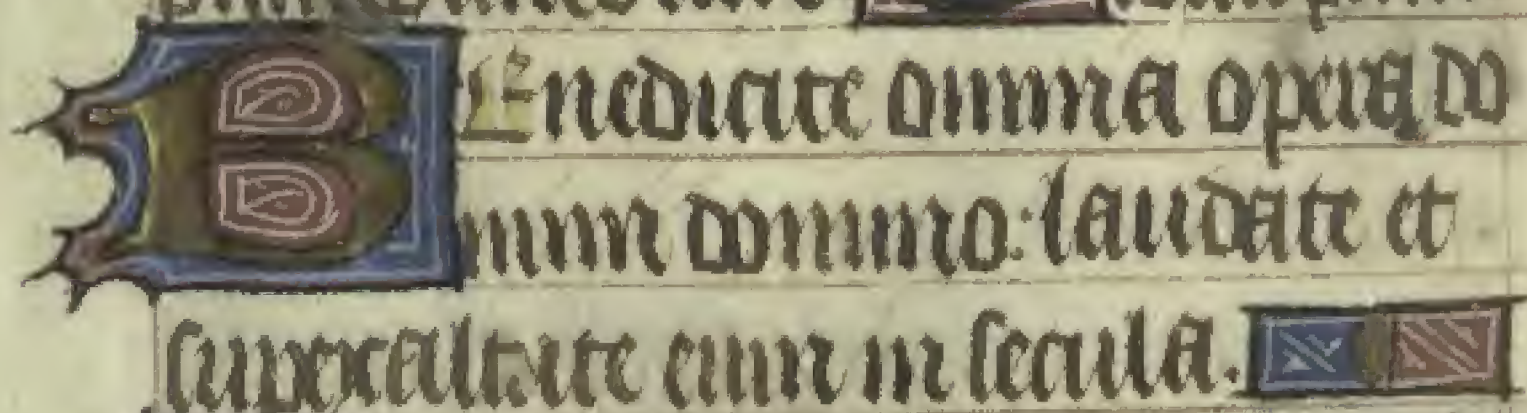 BEnedicite omnia opera do
mini domino: laudate et
superexaltate eum in secula.